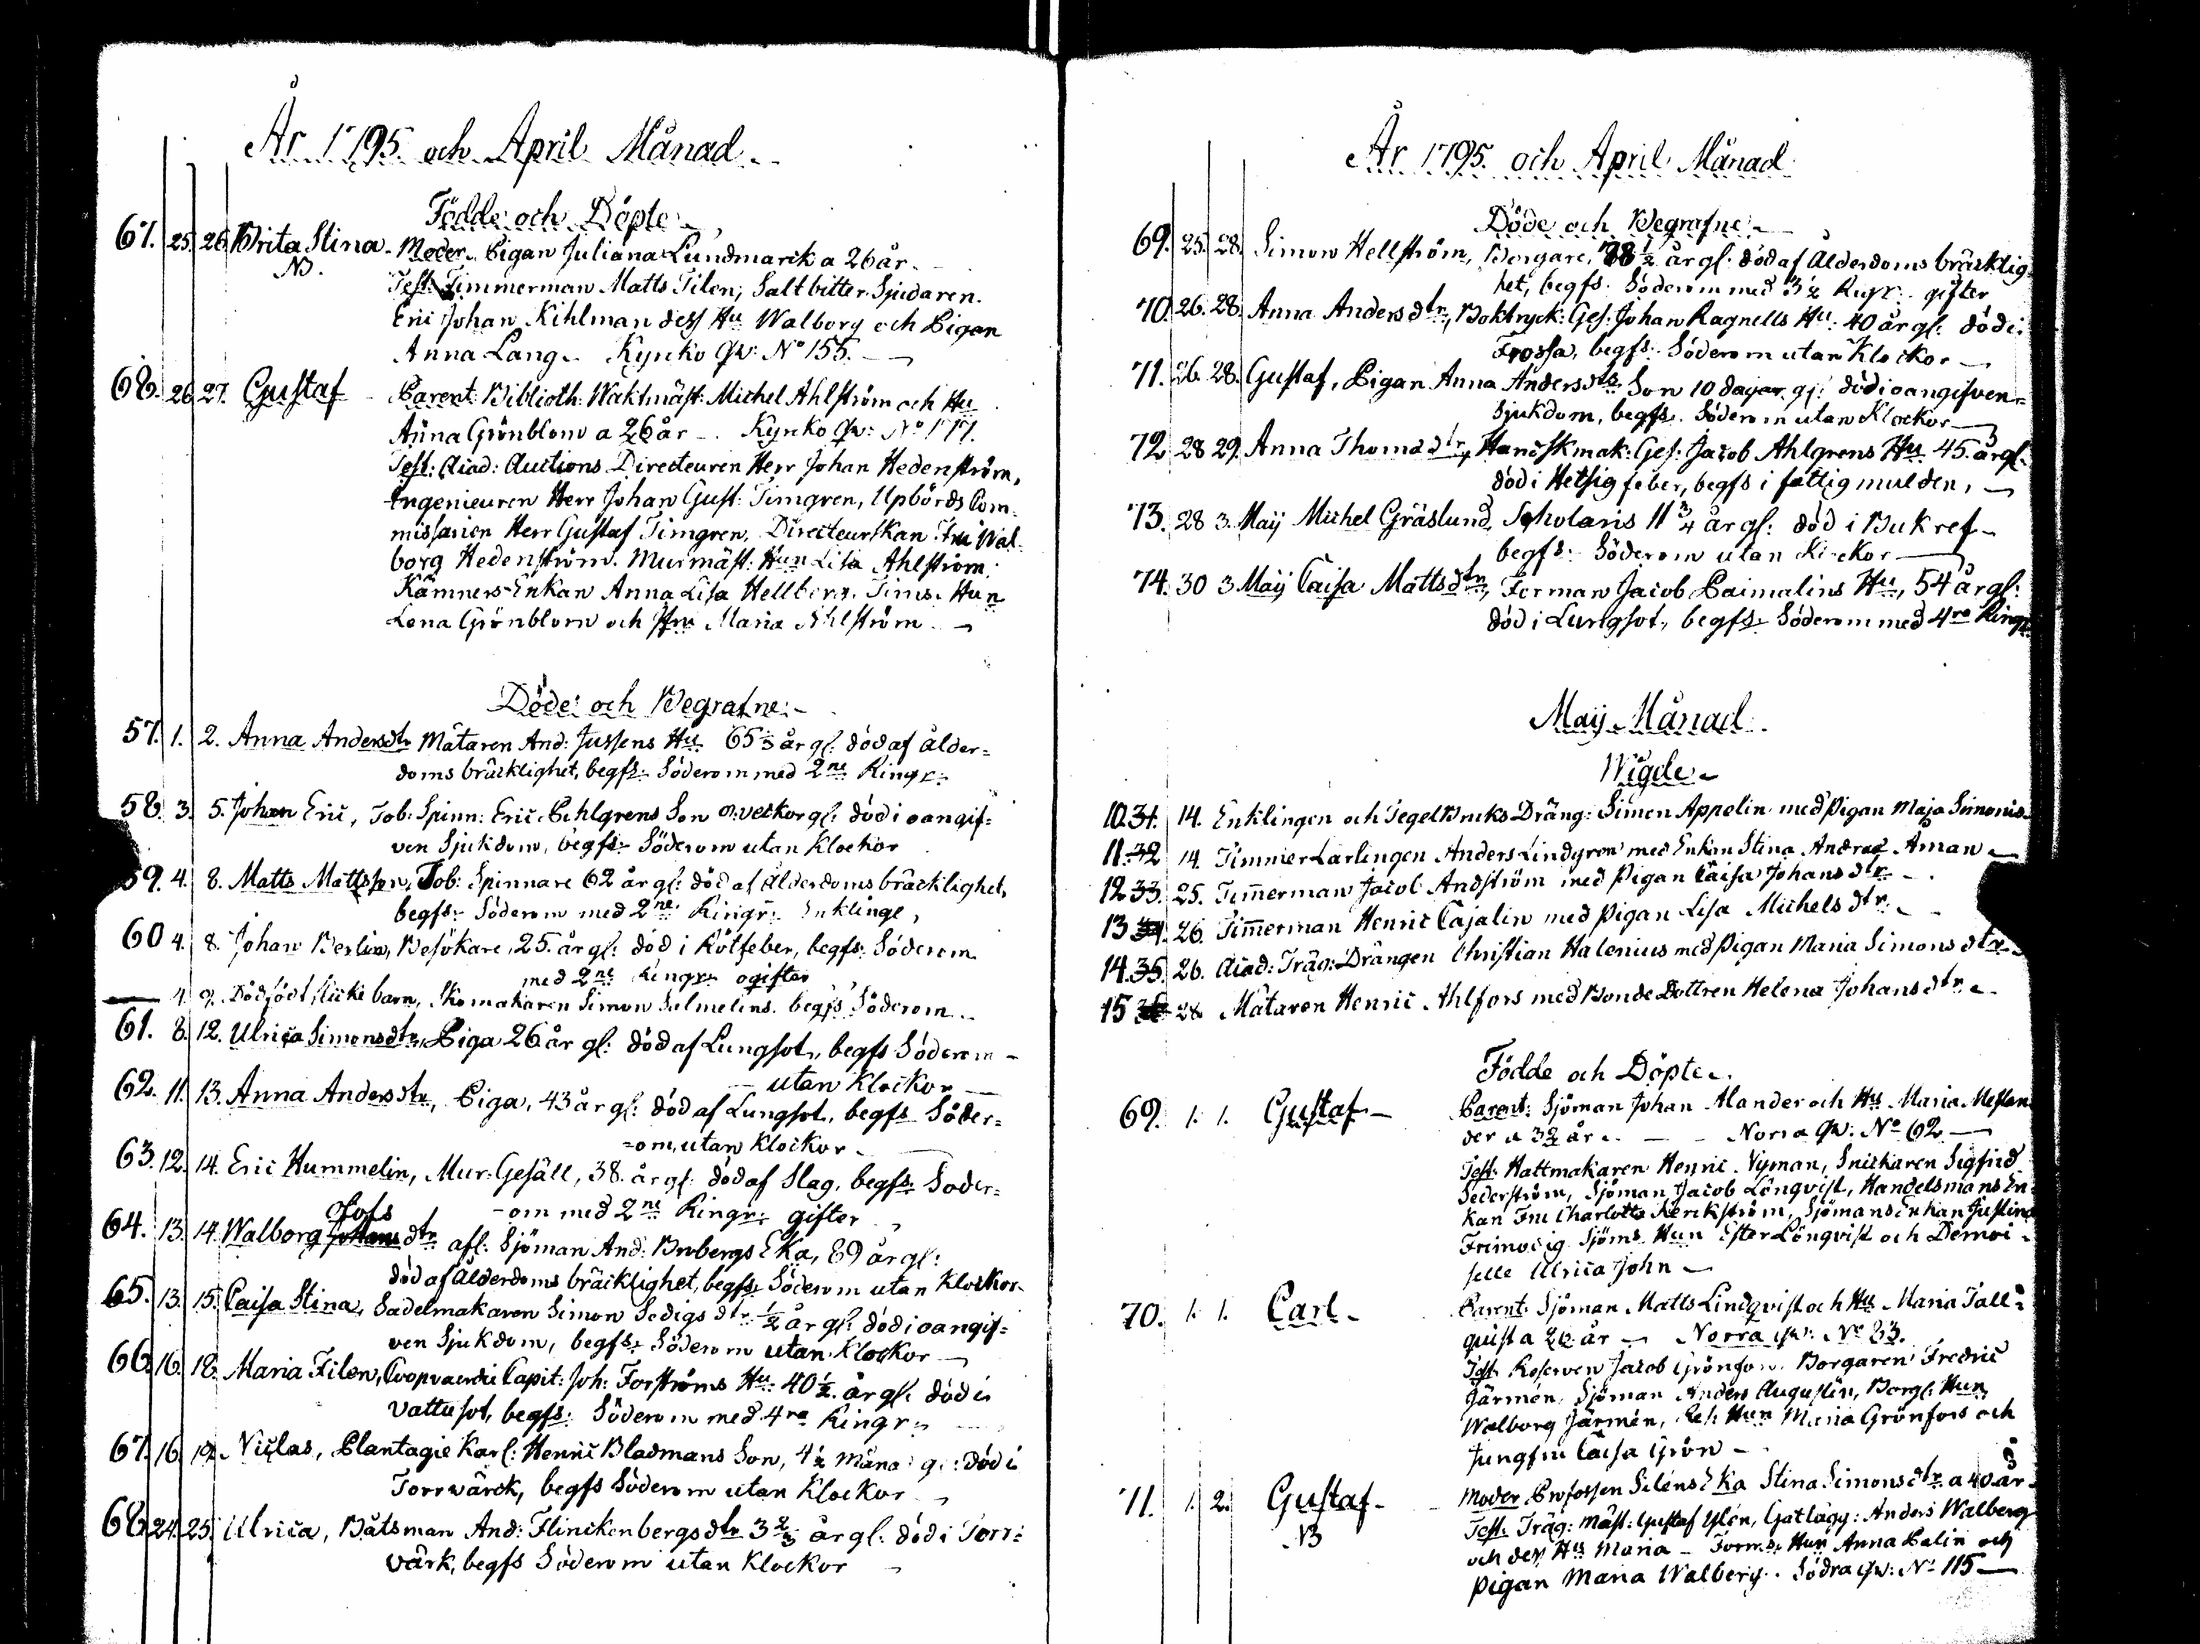 År 1795. och April Månad.
Födde och Döpte
67. 25. 26. Brita Stina. Moder. Pigan Juliana Lundmarck a 26 år.
NB. Test: Timmerman Matts Tilen, Saltbitter Sjudaren
Eric Johan Kihlman dess Hu Walborg och Pigan
Anna Lang. Kyrko Qv: No 155.
68. 26. 27. Gustaf Parent: Biblioth: Waktmäst: Michel Ahlström och Hu
Anna Grönblom a 26 år. Kyrko Qv: No 177.
Test: Acad: Auctions Directeuren Herr Johan Hedenström,
Ingenieuren Herr Johan Gust: Timgren, Upbörds Com-
missarien Herr Gustaf Timgren, Directeurskan Fru Wal-
borg Hedenström. Murmäst: Hun Lisa Ahlström.
Kämners Enkan Anna Lisa Hellberg, Tims. Hun
Lena Grönblom och Maria Ahlström
Döde och Begrafne.
57. 1. 2. Anna Andersdtr Mätaren And: Jussens Hu 65 år gl: död af ålder=
doms bräcklighet, begfs. Söderom med 2ne Ringr.
58. 3. 5. Johan Eric, Tob: Spinn: Eric Pihlgrens Son veckor gl: död i oangif=
ven Sjukdom, begfs. Söderom utan Klockor
59. 4. 8. Matts Mattsson, Tob: Spinnare 62 år gl: död af Ålderdoms bräcklighet,
begfs. Söderom med 2ne Ringr. Enklinge,
60 4. 8. Johan Berlin, Besökare, 25. år gl: död i Rötfeber, begfs: Söderom
med 2ne Ringr. ogifter
4. 9. Dödfödt flicke barn, Skomakaren Simon Salmelins. begfs Söderom.
61. 8. 12. Ulrica Simonsdtr, Piga 26 år gl: död af Lungsot, begfs Söderom
utan Klockor
62. 11. 13. Anna Andersdtr, Piga, 43 år gl: död af Lungsot, begfs Söder=
=om, utan Klockor.
63. 12. 14. Eric Hummelin, Mur: Gesäll, 38. år gl: död af Slag, begfs. Söder=
-om med 2ne Ringr: gifter
Olofs
64. 13. 14. Walborg Johansdtr afl: Sjöman And: Brobergs Eka, 89 år gl:
död af Ålderdoms bräcklighet, begfs. Söderom utan Klockor
65. 13. 15. Caisa Stina, Sadelmakaren Simon Sedigs dtr ½ år gl: död i oangif=
ven Sjukdom, begfs. Söderom utan Klockor
66. 16. 18. Maria Filen, Coopvaerdie Capit: Joh: Forströms Hu 40 ½ år gl: död i
Vattusot, begfs: Söderom med 4ra Ringr.
67. 16. 19. Niclas, Plantagie Karl: Henric Bladmans Son, 4 ½ Måna gl: död i
Torrwärck, begfs Söderom utan Klockor
68. 24. 25. Ulrica, Båtsman And: Flinckenbergs dtr 3 2/3 år gl: död i Torr=
värk, begfs Söderom utan Klockor
År 1795. och April Månad
Döde och Begrafne
69. 25. 28. Simon Hellström, Borgare, 78 ½ år gl: död af Ålderdoms bräcklig
het, begfs. Söderom med 3 ½ Ringr. gifter
70. 26. 28. Anna Andersdtr, Boktryck: Ges: Johan Ragnells Hu: 40 år gl: död i
Frossa, begfs. Söderom utan Klockor
71. 26. 28. Gustaf, Pigan Anna Andersdtrs Son 10 dagar gl: död i oangifven=
Sjukdom, begfs. Söderom utan Klockor
72 28 29. Anna Thomadtr, Handskmak: Ges: Jacob Ahlgrens Hu 45. år gl.
död i Hetsig feber, begfs i fattig mulden,
73. 28 3. Maij Michel Gräslund, Scholaris 11 ¾ år gl: död i Bukref
begfs. Söderom utan Klockor
74. 30 3. Maij Caisa Mattsdtr, Forman Jacob Paimalins Hu, 54 år gl:
död i Lungsot, begfs. Söderom med 4ra Ringr
Maij Månad.
Wigde
10. 31. 14. Enklingen och Tegel Bruks Dräng: Simon Appelin med Pigan Maja Simonis
11. 32 14. Timmer Karlingen Anders Lindgren med Enkan Stina Andrae Åman
12 33. 25. Timmerman Jacob Andström med Pigan Caisa Johansdtr
13 34. 26. Timmerman Henric Cajalin med Pigan Lisa Michelsdtr.
14. 35. 26. Acad: Träg: Drängen Christian Halenius med Pigan Maria Simonsdtr
15 36 28. Mätaren Henric Ahlfors med Bonde Dottren Helena Johansdtr
Födde och Döpte.
69. 1. 1. Gustaf Parent: Sjöman Johan Alander och Hu Maria Meslan
der a 32 år. Norra Qv: No 62
Test. Hattmakaren Henric Nyman, Snickaren Sigfrid
Sederström, Sjöman Jacob Lönqvist, Handelsmans En
kan Fru Charlotta Merckström, Sjömans Enkan Justina
Frimodig Sjöms. Hun Ester Lönqvist och Demoi-
selle Ulrica John
70. 1. 1. Carl Parent: Sjöman Matts Lindqvist och Hu Maria Tall=
quist a 26 år Norra Qv: No 33.
Test. Jacob Grönfors. Borgaren Fredric
Järmén, Sjöman Anders Augustin, Borg: Hun
Walborg Järmén, Hun Maria Grönfors och
Jungfru Caisa Grön
71. 1. 2. Gustaf Moder. Profossen Siléns Eka Stina Simonsdtr a 40 år.
NB Test. Träg: Mäst: Gustaf Ylén, Anders Walberg
och dess Hu Maria - Forms. Hun Anna Palin och
Pigan Maria Walberg. Södra Qv: No 115